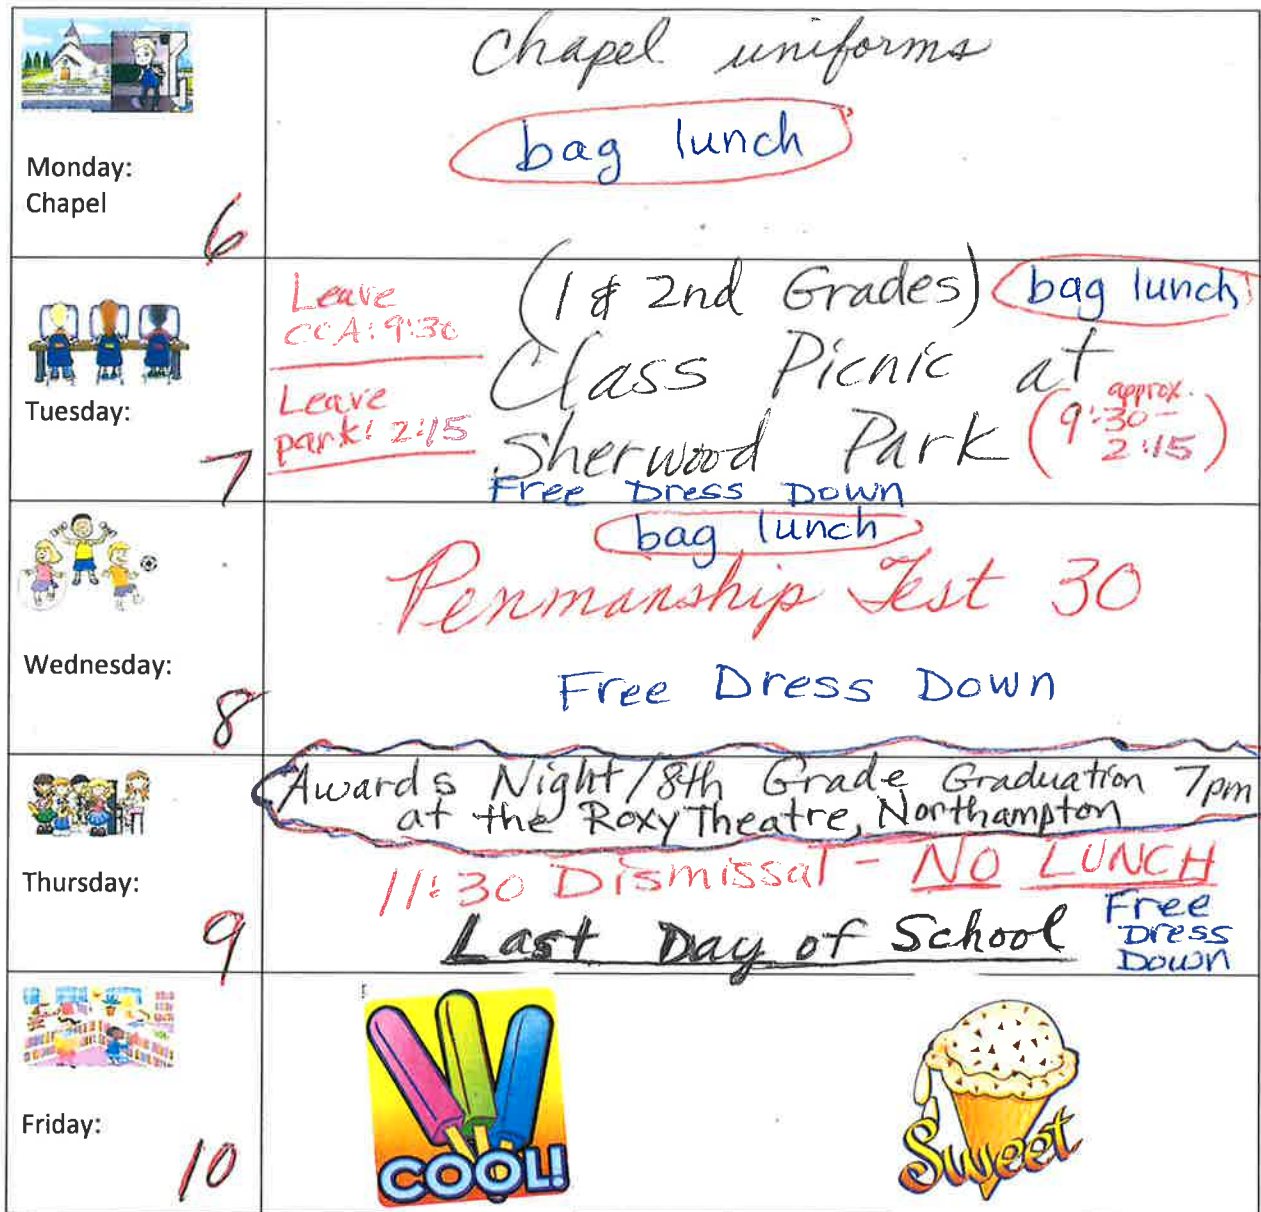 Chapel uniforms
bag lunch
Monday:
Chapel
6
Leave
CCA: 9:30
Leave
park: 2:15
(1 & 2nd Grades)
bag lunch
Class Picnic at
Sherwood Park
(approx.
9:30 -
2:15)
Free Dress Down
Tuesday:
7
bag lunch
Penmanship Test 30
Free Dress Down
Wednesday:
8
Awards Night/8th Grade Graduation 7pm
at the Roxy Theatre, Northampton
11:30 Dismissal - NO LUNCH
Last Day of School
Free
Dress
Down
Thursday:
9
Friday:
10
COOL!
Sweet